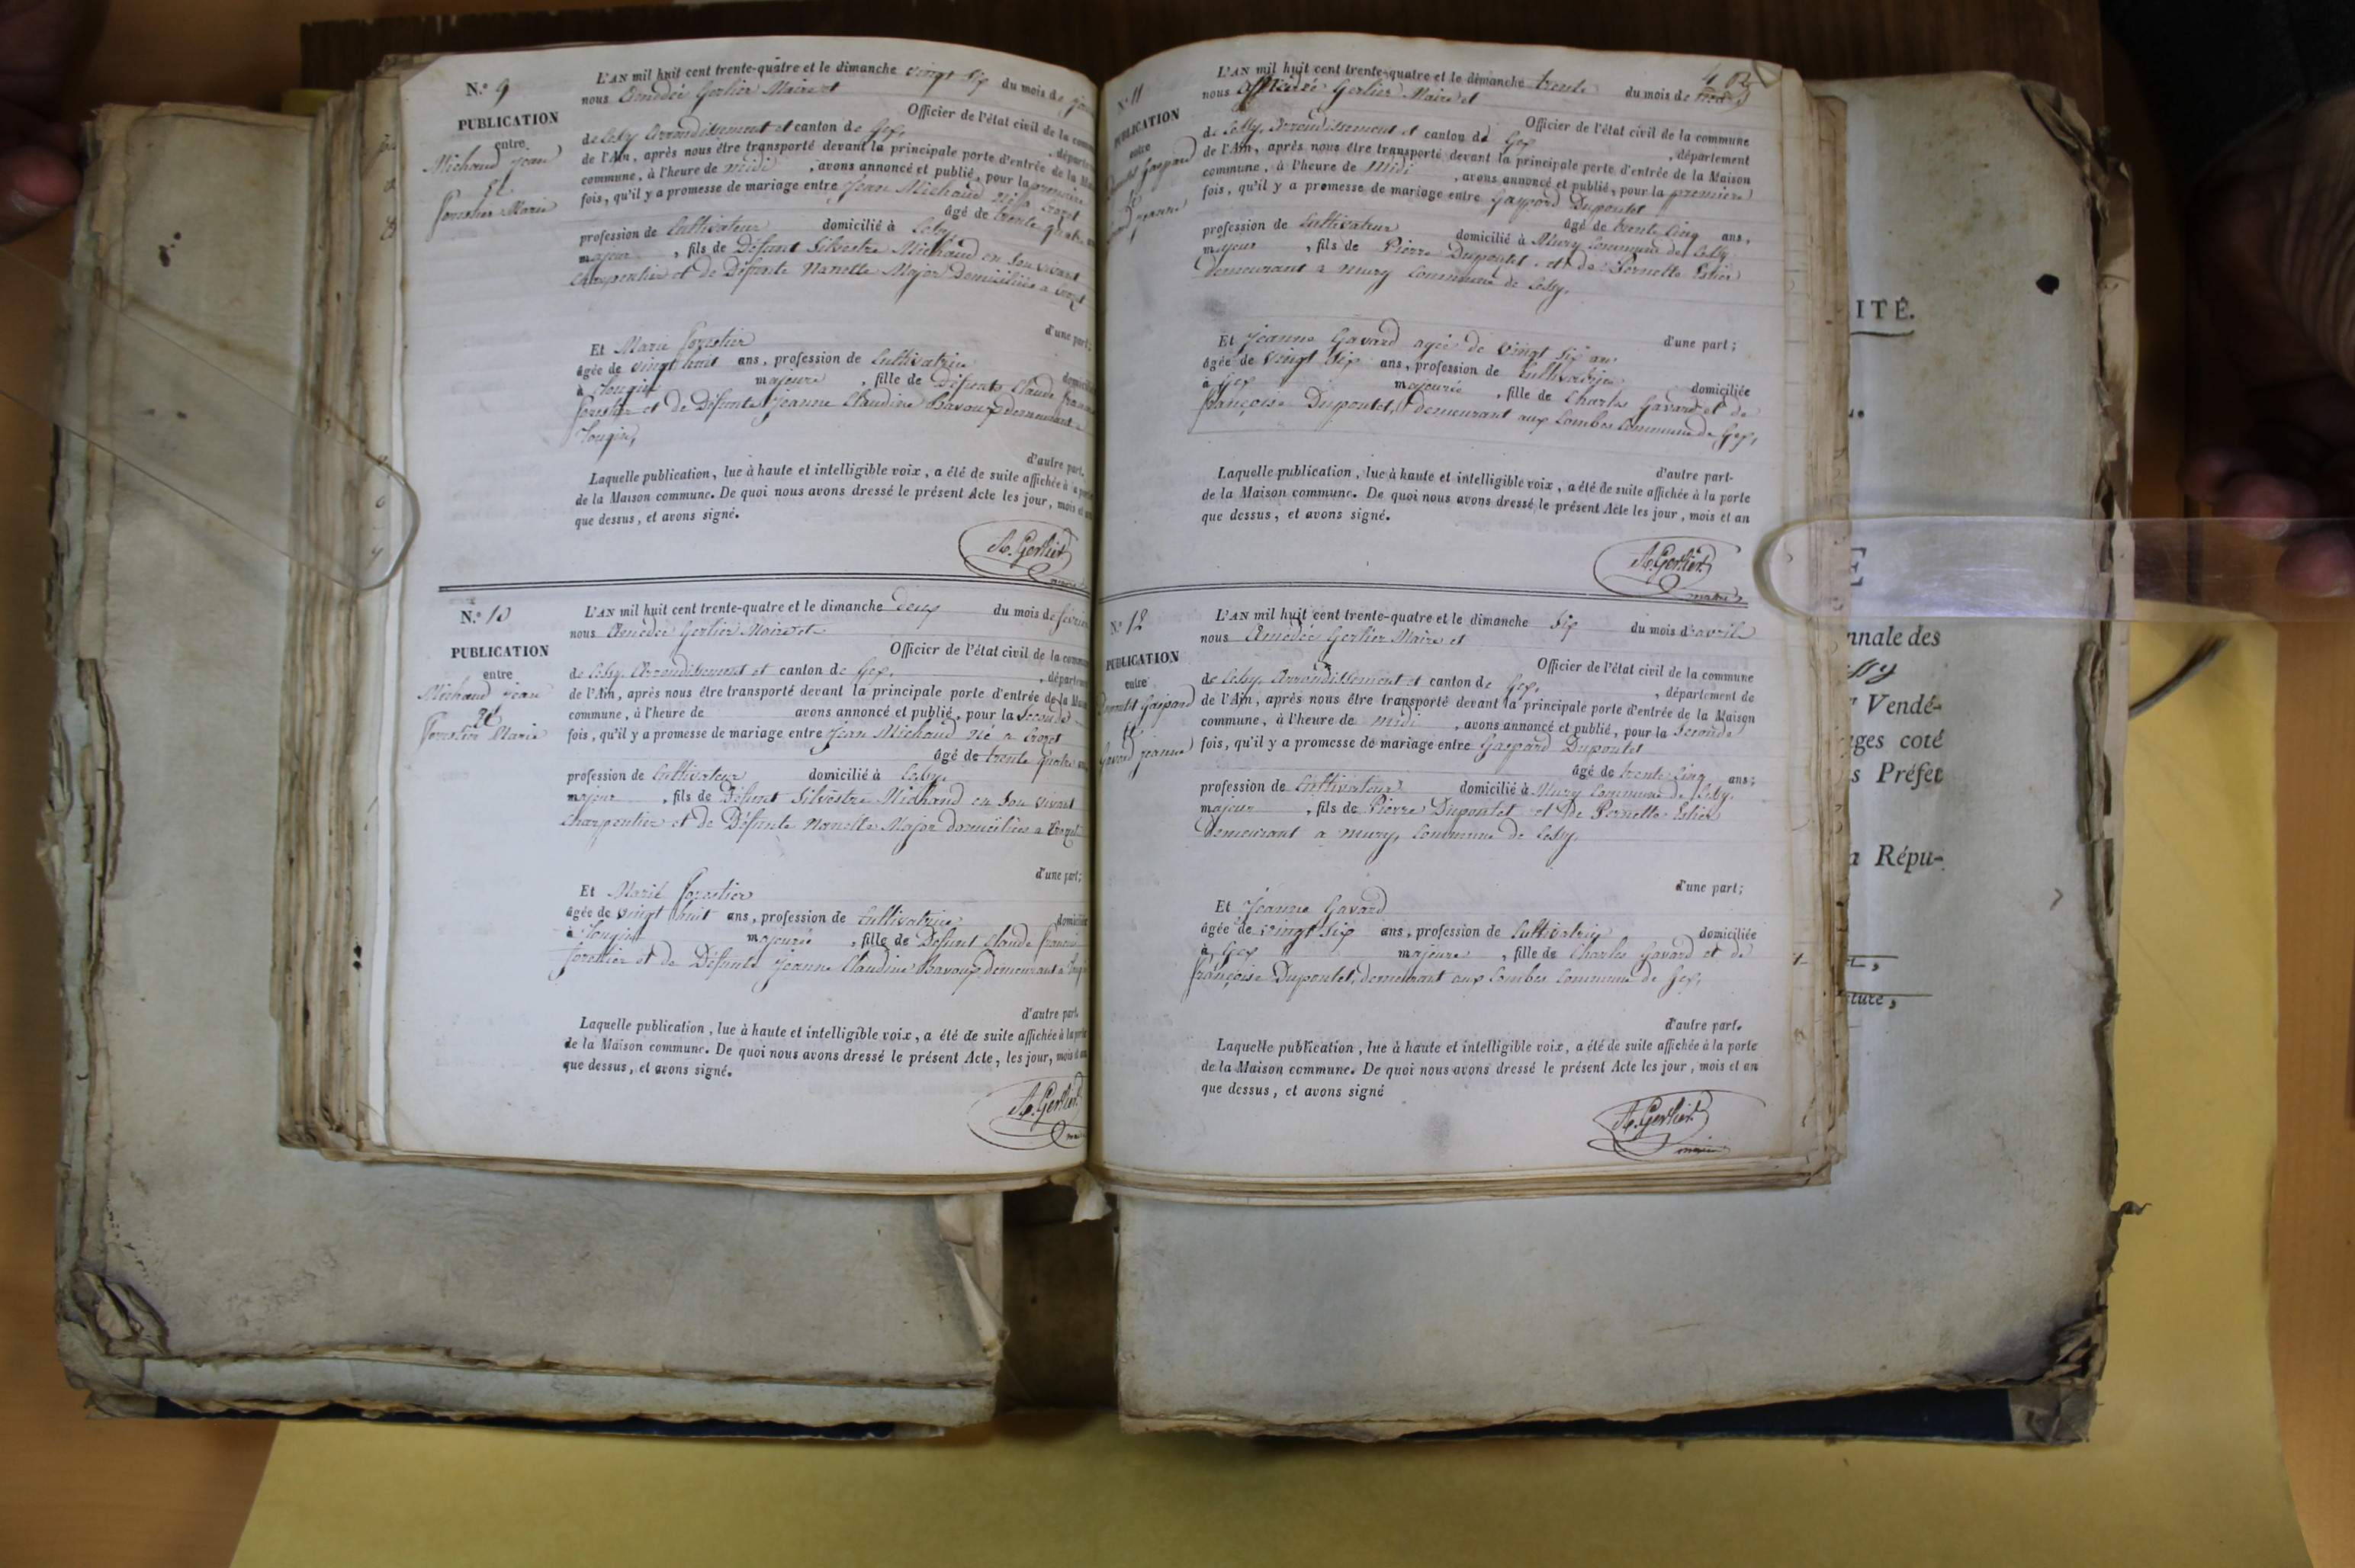 N.° 9
PUBLICATION
entre
Michaud Jean
Et
forestier Marie
L'AN mil huit cent trente-quatre et le dimanche vingt six du mois de
nous Amédée Gerlier Maire et
Officier de l'état civil de la
de Cessy Arrondissement et canton de Gex,
de l'Ain, après nous être transporté devant la principale porte d'entrée de la
commune, à l'heure de midi , avons annoncé et publié, pour la première
fois, qu'il y a promesse de mariage entre Jean Michaud né à Crozet
âgé de trente quatre
profession de Cultivateur domicilié à Cessy
majeur , fils de Défunt Silvestre Michaud en son vivant
Charpentier et de Défunte Nanette Major Domiciliés a Crozet
d'une part;
Et Marie forestier
âgée de vingt huit ans, profession de Cultivatrice
à majeure , fille de Défunt Claude
forestier et de Défunte Jeanne Claudine Bavoux demeurant a
d'autre part.
Laquelle publication, lue à haute et intelligible voix, a été de suite affichée à la
de la Maison commune. De quoi nous avons dressé le présent Acte les jour, mois et an
que dessus, et avons signé.
A. Gerlier
maire
N.° 10
PUBLICATION
entre
Michaud Jean
Et
forestier Marie
L'AN mil huit cent trente-quatre et le dimanche deux du mois de février
nous Amédée Gerlier Maire et
Officier de l'état civil de la
de Cessy Arrondissement et canton de Gex,
de l'Ain, après nous être transporté devant la principale porte d'entrée de la
commune, à l'heure de avons annoncé et publié, pour la Seconde
fois, qu'il y a promesse de mariage entre Jean Michaud né a Crozet
âgé de trente quatre
profession de Cultivateur domicilié à Cessy
majeur , fils de Défunt Silvestre Michaud en son vivant
Charpentier et de Défunte Nanette Major domiciliés a Crozet
d'une part;
Et Marie forestier
âgée de vingt huit ans, profession de Cultivatrice domiciliée
à majeure , fille de Défunt Claude
forestier et de Défunte Jeanne Claudine Bavoux demeurant a
d'autre part.
Laquelle publication, lue à haute et intelligible voix, a été de suite affichée à la
de la Maison commune. De quoi nous avons dressé le présent Acte, les jour, mois et an
que dessus, et avons signé.
A. Gerlier
N.° 11
PUBLICATION
entre
Gaspard
et
Jeanne
L'AN mil huit cent trente-quatre et le dimanche trente du mois de mars
nous Amédée Gerlier Maire et
Officier de l'état civil de la commune
de Cessy, Arrondissement et canton de Gex , département
de l'Ain, après nous être transporté devant la principale porte d'entrée de la Maison
commune, à l'heure de midi , avons annoncé et publié, pour la première
fois, qu'il y a promesse de mariage entre Gaspard Dupontet
âgé de trente cinq ans,
profession de Cultivateur domicilié à Mury Commune de Cessy
majeur , fils de Pierre Dupontet et de Pernette
demeurant a mury Commune de Cessy.
d'une part;
Et Jeanne Gavard agée de vingt six an
âgée de vingt six ans, profession de Cultivatrice
à Gex majeure , fille de Charles Gavard et de domiciliée
françoise Dupontet, demeurant aux Combes Commune de Gex,
d'autre part.
Laquelle publication, lue à haute et intelligible voix, a été de suite affichée à la porte
de la Maison commune. De quoi nous avons dressé le présent Acte les jour, mois et an
que dessus, et avons signé.
A. Gerlier
maire
N.° 12
PUBLICATION
entre
Dupontet Gaspard
Et
Gavard Jeanne
L'AN mil huit cent trente-quatre et le dimanche Six du mois d'avril
nous Amédée Gerlier Maire et
Officier de l'état civil de la commune
de Cessy Arrondissement et canton de Gex, , département de
de l'Ain, après nous être transporté devant la principale porte d'entrée de la Maison
commune, à l'heure de midi , avons annoncé et publié, pour la Seconde
fois, qu'il y a promesse de mariage entre Gaspard Dupontet
âgé de trente cinq ans;
profession de Cultivateur domicilié à Mury Commune de Cessy.
majeur , fils de Pierre Dupontet et De Pernette
Demeurant a mury, Commune de Cessy.
d'une part;
Et Jeanne Gavard
âgée de vingt six ans, profession de Cultivatrice domiciliée
à Gex majeure , fille de Charles Gavard et de
françoise Dupontet, demeurant aux Combes Commune de Gex,
d'autre part.
Laquelle publication, lue à haute et intelligible voix, a été de suite affichée à la porte
de la Maison commune. De quoi nous avons dressé le présent Acte les jour, mois et an
que dessus, et avons signé
A. Gerlier
maire
ITÉ.
E
nnale des
Vendé-
ges coté
s Préfet
a Répu-
ture,